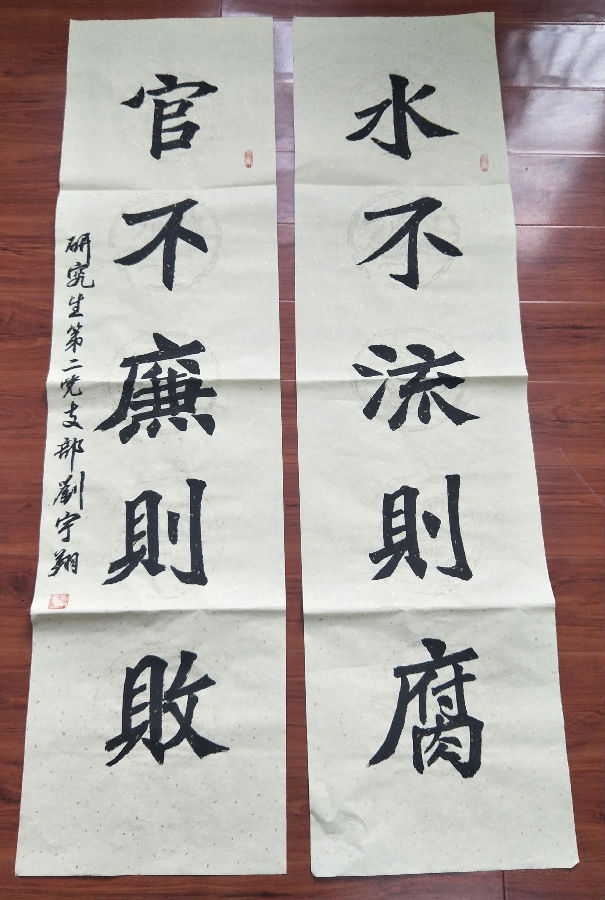 水不流則腐
官不廉則敗
研究生第二党支部劉宇翔